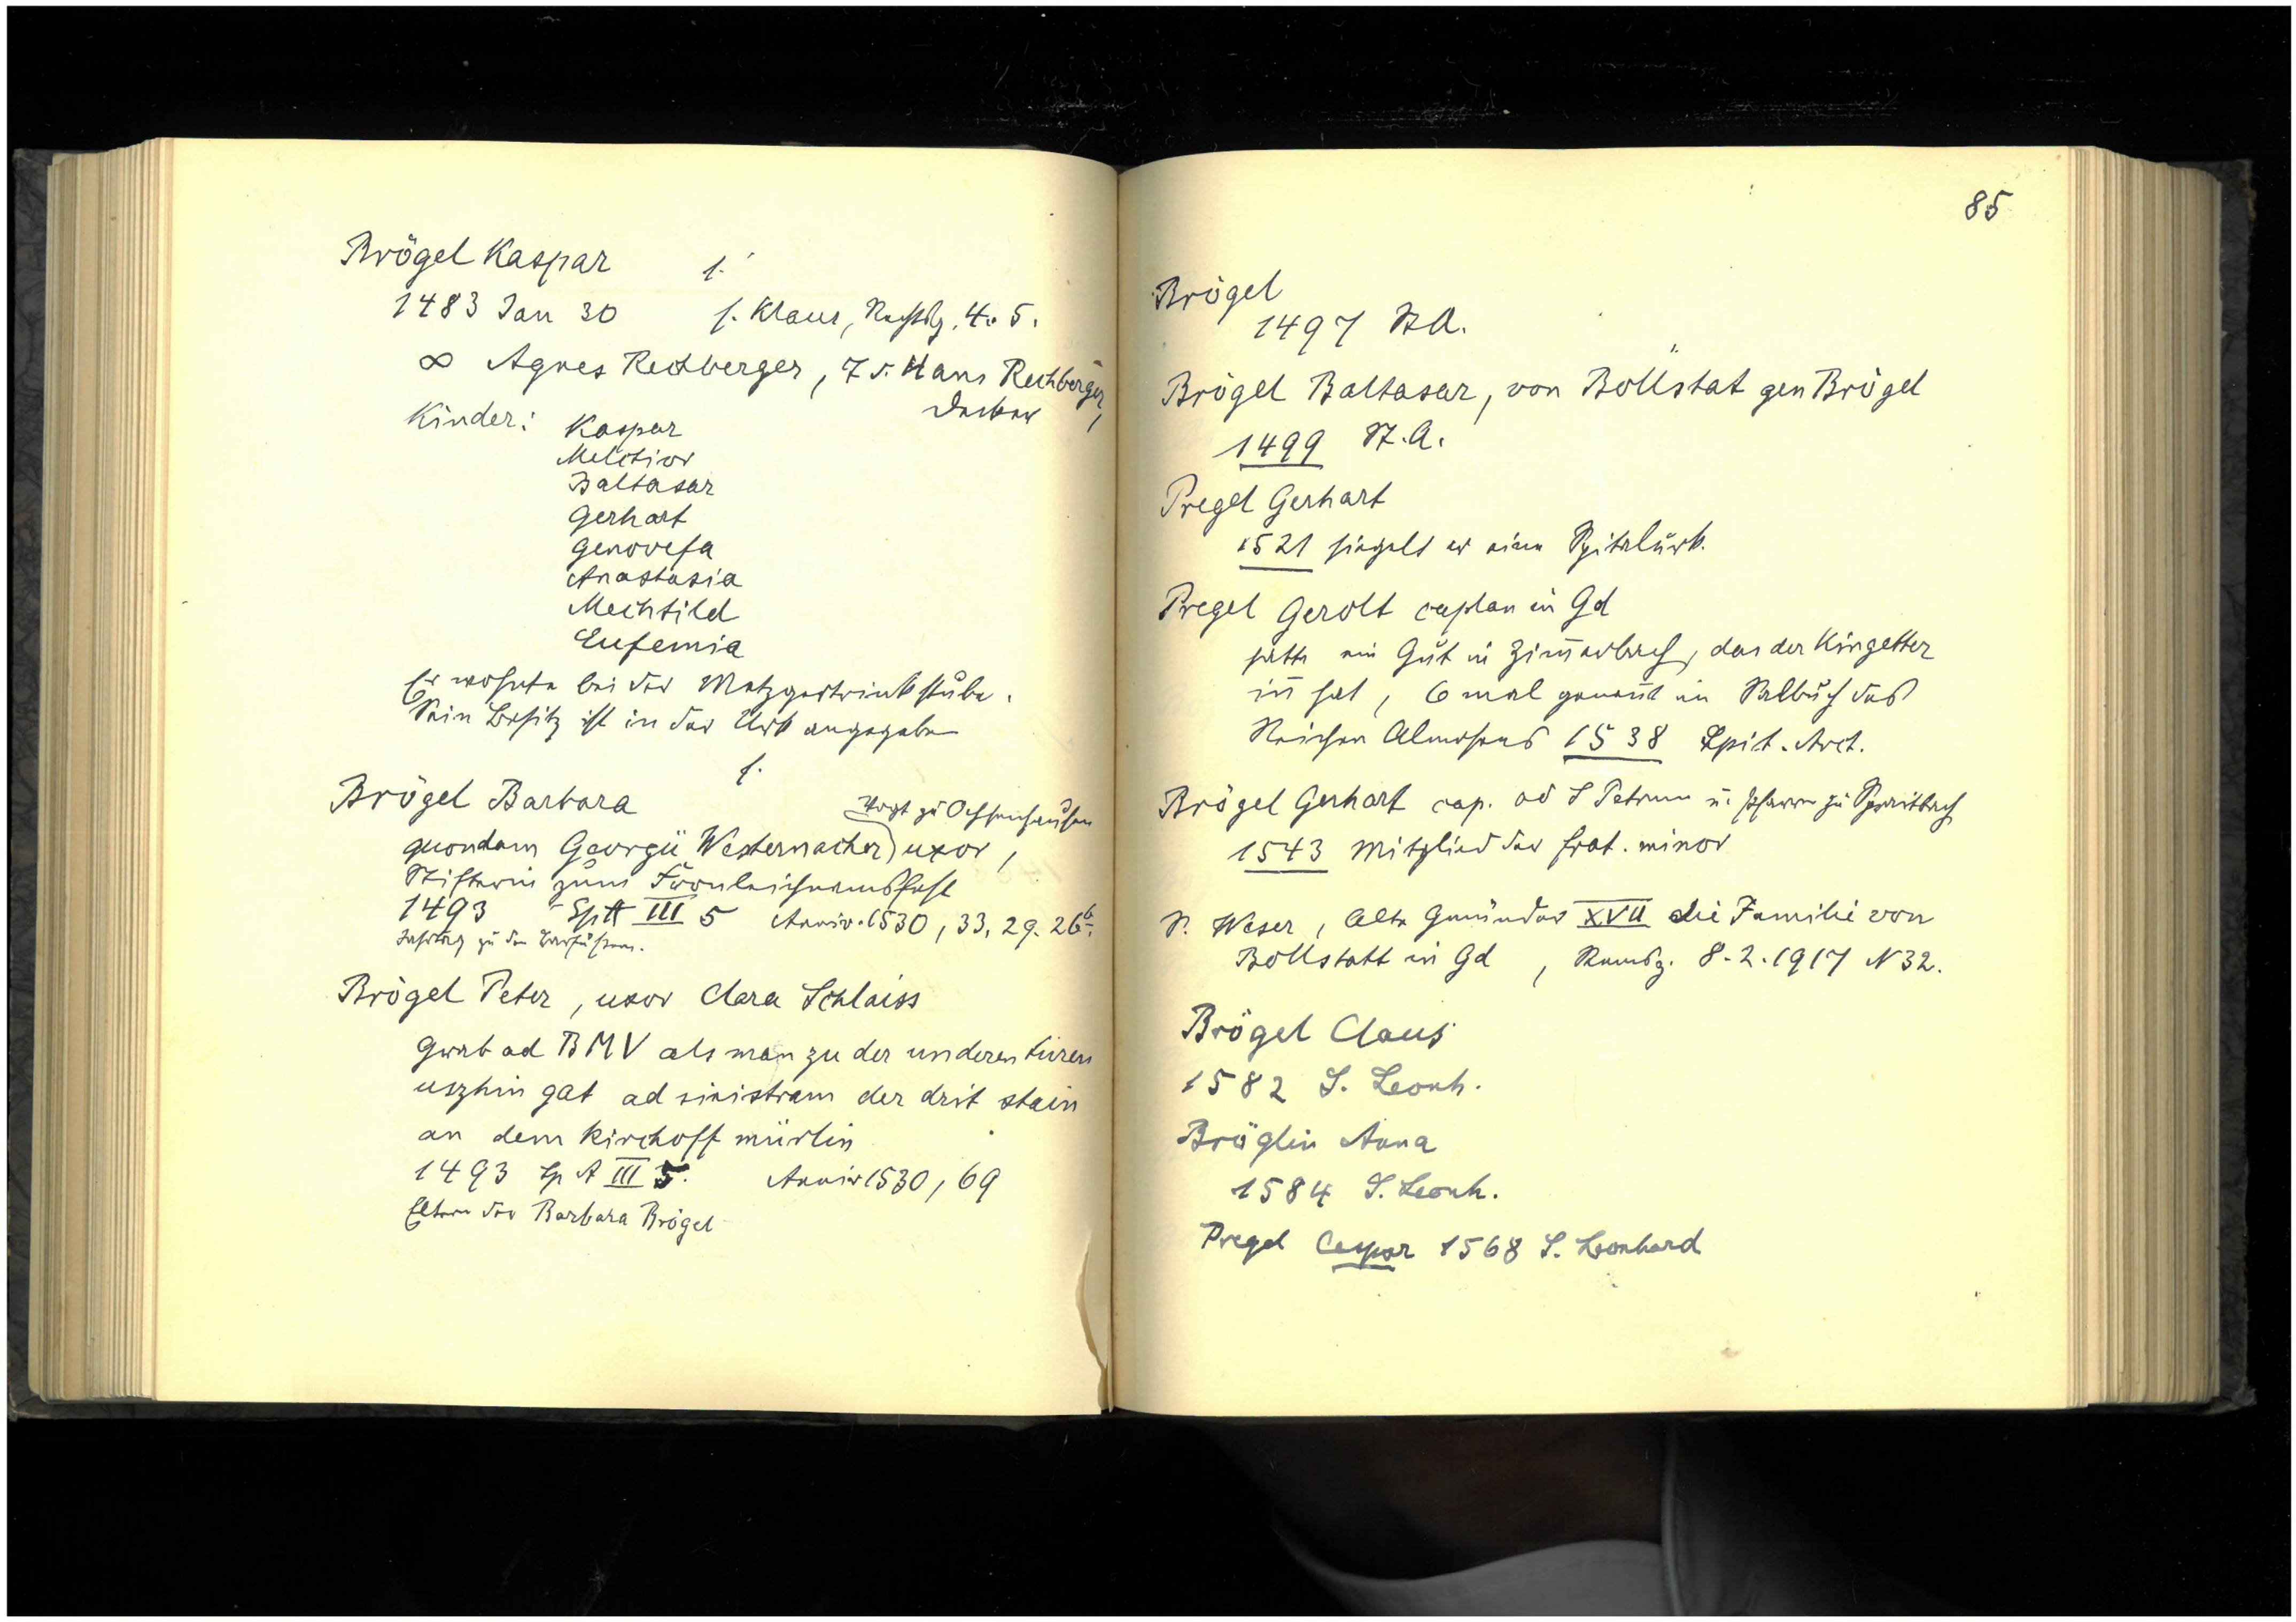 Brögel Kaspar f.
1483 Jan 30 f. Klaus, Nachtrg. 4. 5.
∞ Agnes Rechberger, T v. Hans Rechberger,
Kinder: Kaspar
Melchior
Baltasar
Gerhart
Genovefa
Anastasia
Mechtild
Eufemia
Er wohnte bei der Metzgertrinkstube.
Sein Besitz ist in der Urk angegeben
f.
Brögel Barbara
Vogt zu Ochsenhausen
quondam Georgii Westernacher) uxor,
Stifterin zum Fronleichnamsfest
1493 Sp A III 5 Anniv. 1530, 33, 29. 26b.
Jahrtag zu den Barfüssern.
Brögel Peter, uxor Clara Schlaiss
Grab ad BMV als man zu der underen türen
uszhin gat ad sinistram der drit stain
an dem Kirchoff mürlin
1493 Sp A III 5. Anniv 1530, 69
Eltern der Barbara Brögel
85
Brögel
1497 St A.
Brögel Baltasar, von Bollstat gen Brögel
1499 St. A.
Pregel Gerhart
1521 siegelt er eine Spitalurk.
Pregel Gerolt caplan in Gd
hatte ein Gut in Zim̄erbach, das der Kingetter
in̄ hat, 6 mal genan̄t im Salbuch des
Reichen Almosens 1538 Spit. Arch.
Brögel Gerhart cap. ad S Petrum u. Pfarrer zu Spraitbach
1543 Mitglied der frat. minor
S. Weser, Alte Gmünder XVII die Familie von
Bollstatt in Gd, Remsz. 8.2.1917 N 32.
Brögel Claus
1582 S. Leonh.
Bröglin Anna
1584 S. Leonh.
Pregel Caspar 1568 S. Leonhard